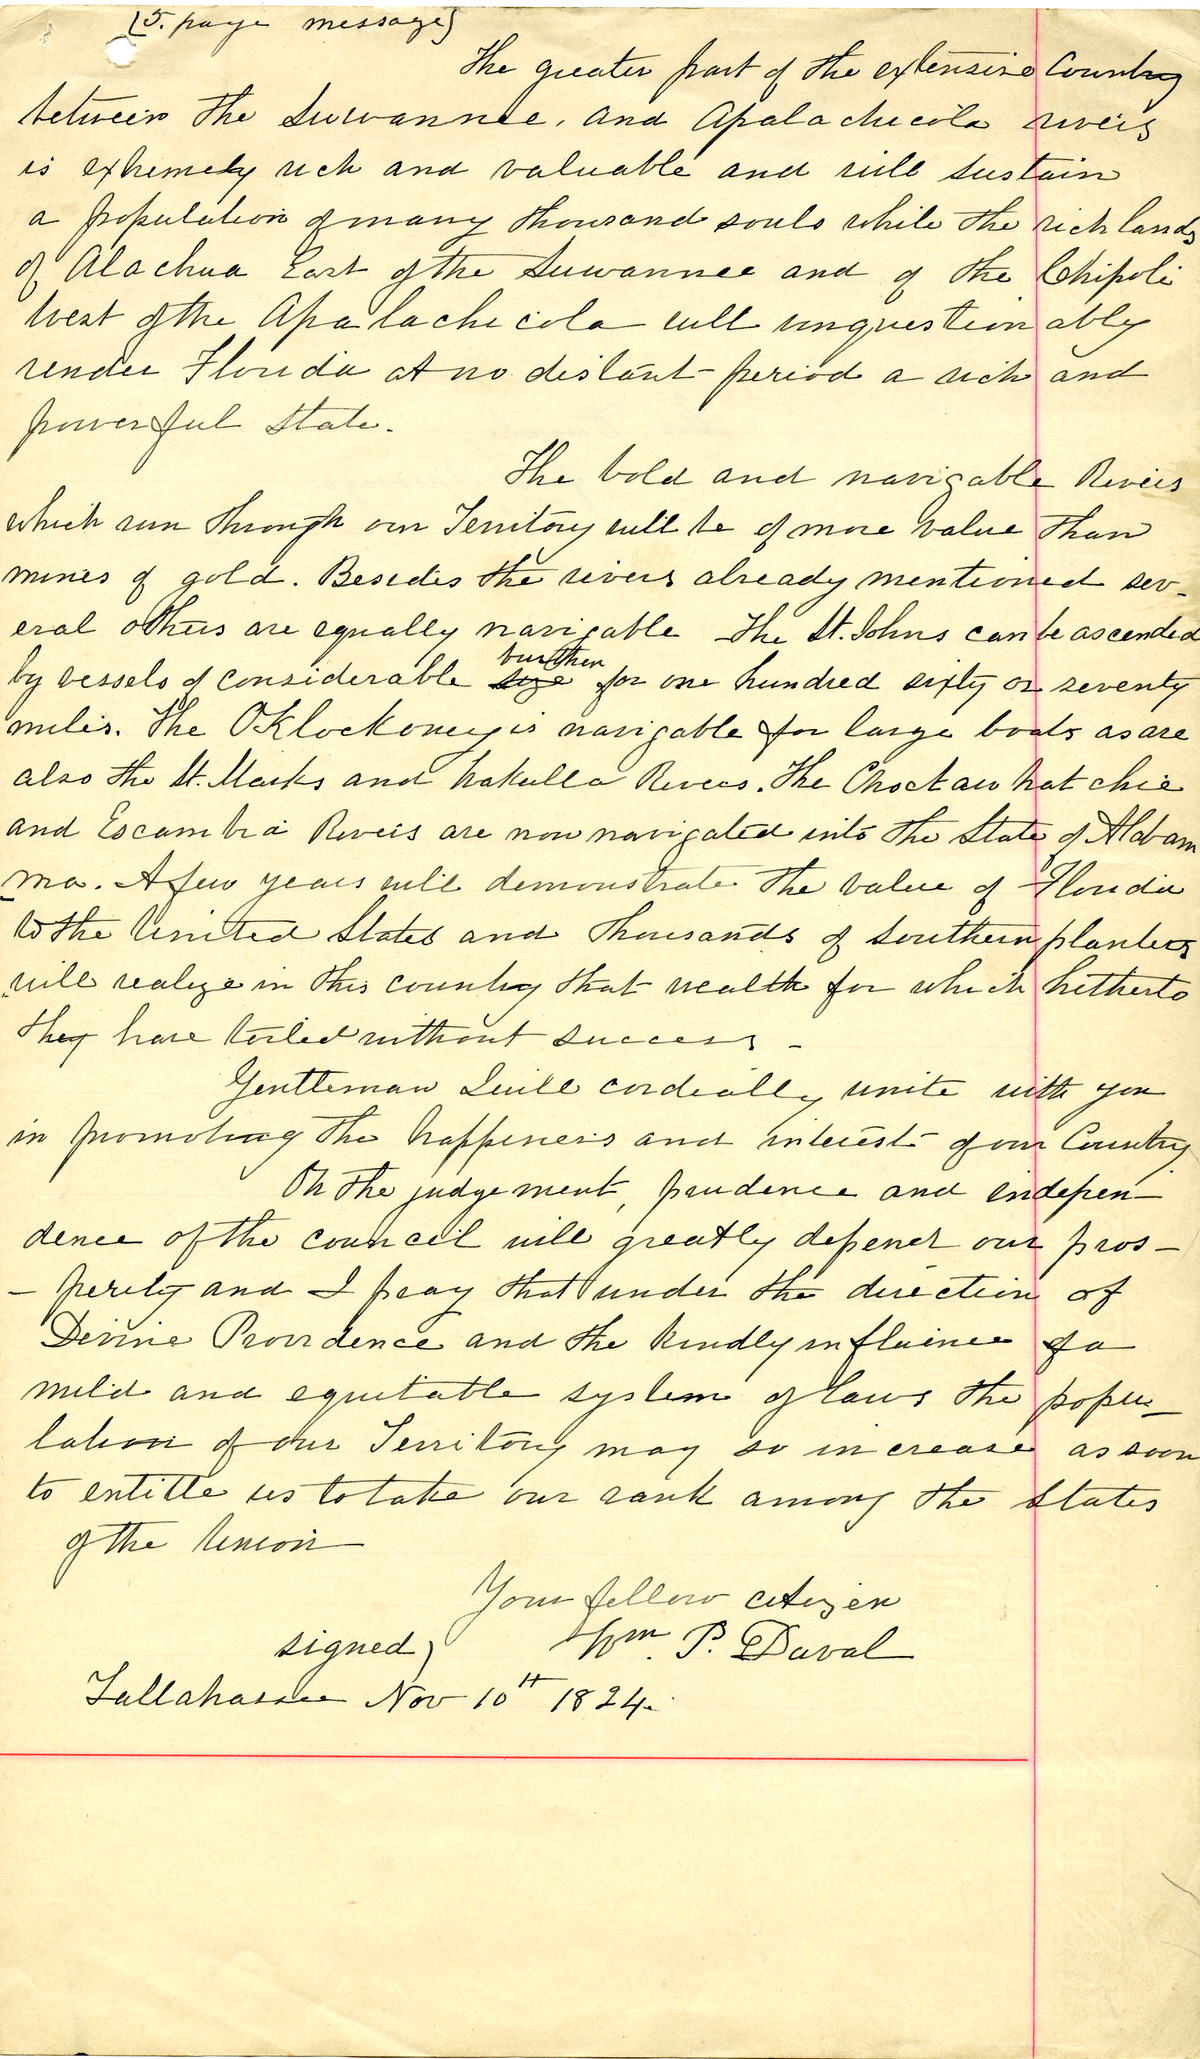 (5. page message)
The greater part of the extensive Country
between the Suwannee, and Apalachicola rivers
is extremely rich and valuable and will sustain
a population of many thousand souls while the rich lands
of Alachua East of the Suwannee and of the Chipoli
West of the Apalachicola will unquestionably
render Florida at no distant period a rich and
powerful State.
The bold and navigable Rivers
which run through our Territory will be of more value than
mines of gold. Besides the rivers already mentioned sev-
eral others are equally navigable The St. Johns can be ascended
burthen
by vessels of considerable size for one hundred sixty or seventy
miles. The Oklockoney is navigable for large boats as are
also the St. Marks and Wakulla Rivers. The Choctawhatchie
and Escambia Rivers are now navigated into the State of Alabam
ma. A few years will demonstrate the value of Florida
to the United States and thousands of southern planters
will realize in this country that wealth for which hitherto
they have toiled without success -
Gentleman I will cordially unite with you
in promoting the happiness and interest of our Country
On the judgement, prudence and indepen-
dence of the council will greatly depend our pros-
- perity and I pray that under the direction of
Divine Providence and the kindly influence of a
mild and equitable system of laws the popu-
lation of our Territory may so increase as soon
to entitle us to take our rank among the States
of the Union
Your fellow citizen
signed) Wm. P. Duval
Tallahassee Nov 10th 1824.